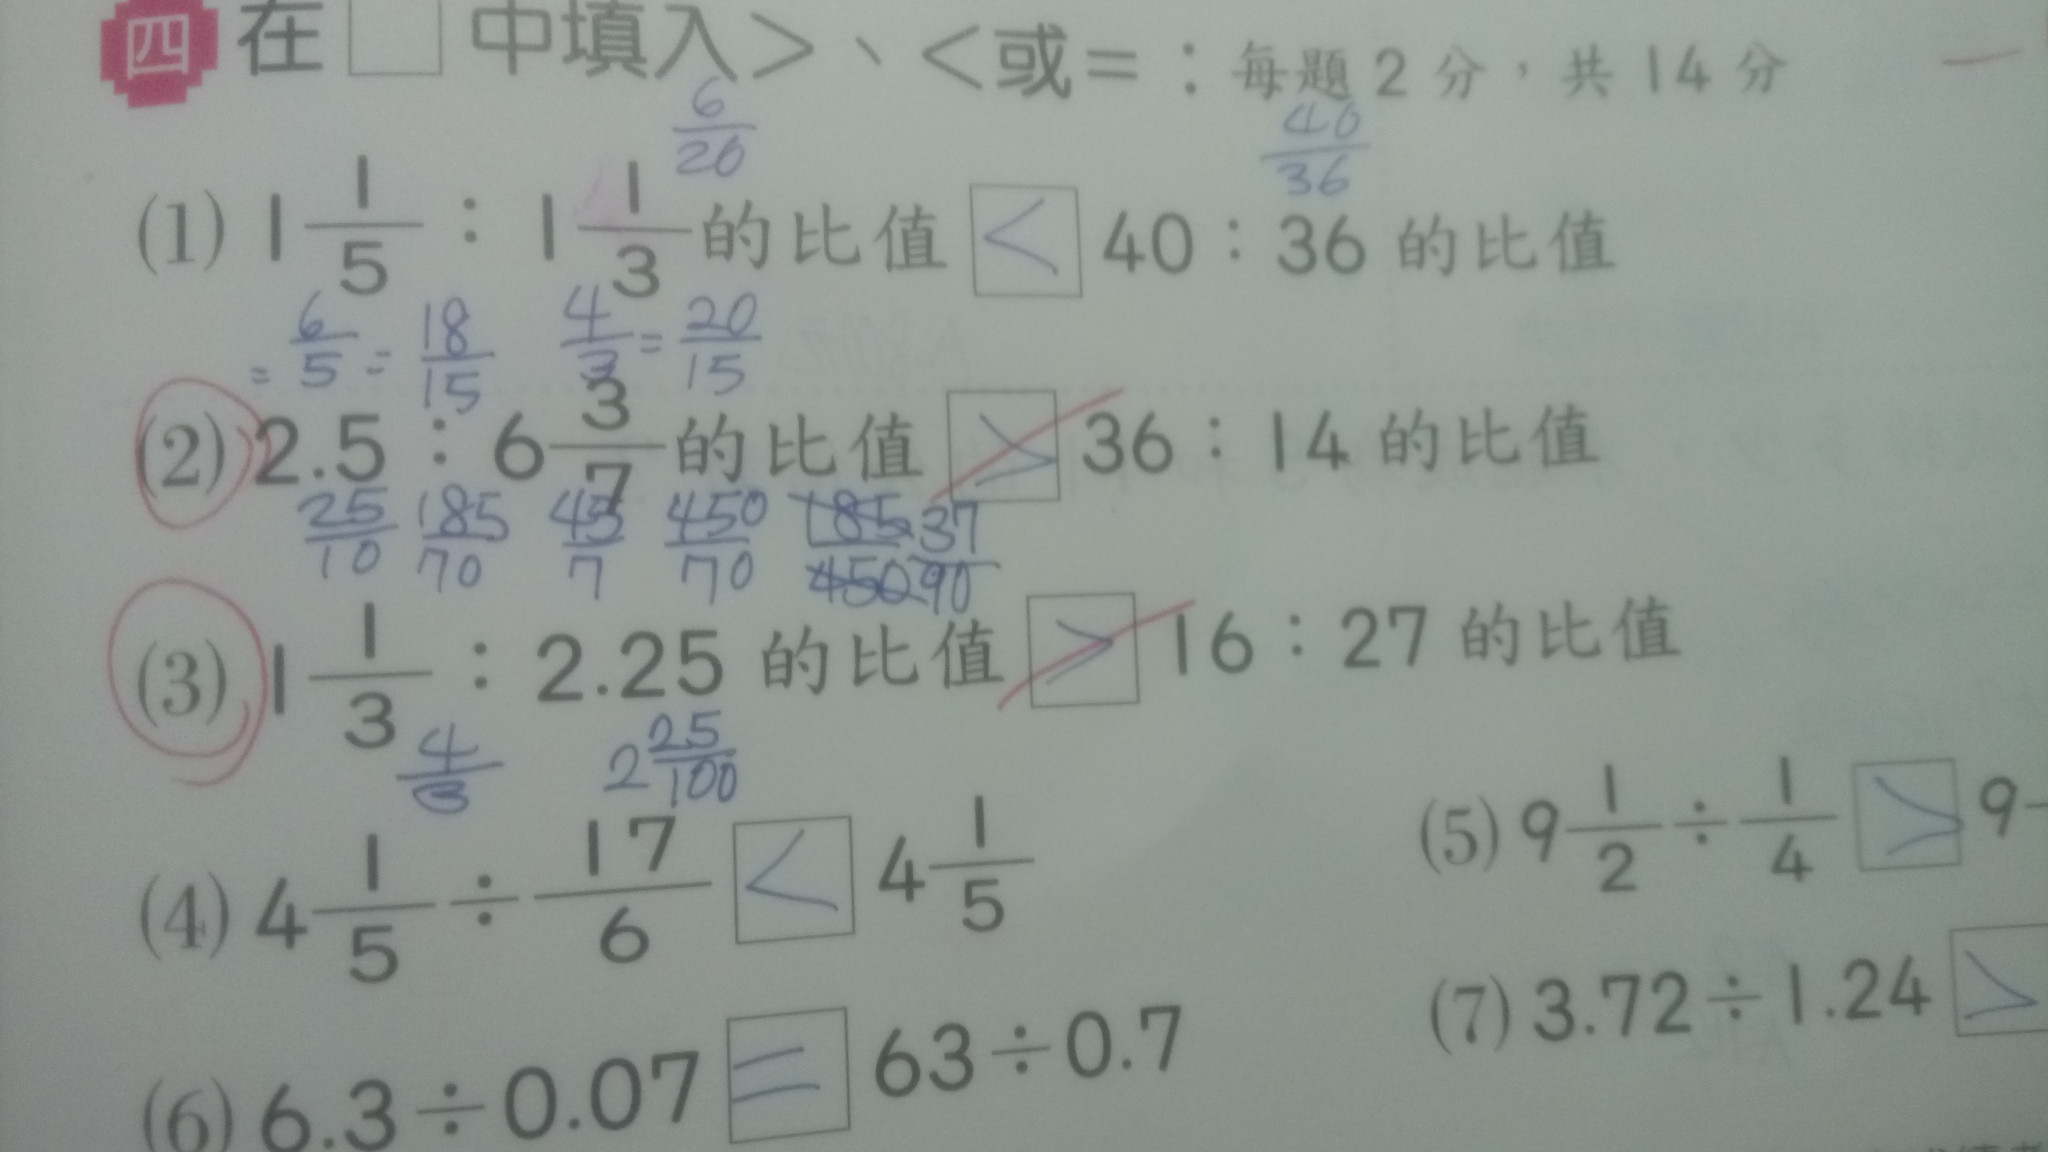 四 在□中填入>、<或=：每題2分，共14分
6/20 40/36
(1) 1 1/5 : 1 1/3 的比值 < 40 : 36 的比值
= 6/5 = 18/15 4/3 = 20/15
(2) 2.5 : 6 3/7 的比值 > 36 : 14 的比值
25/10 185/70 45/7 450/70 185/450 37/90
(3) 1 1/3 : 2.25 的比值 > 16 : 27 的比值
4/3 2 25/100
(4) 4 1/5 ÷ 17/6 < 4 1/5
(5) 9 1/2 ÷ 1/4 > 9
(6) 6.3 ÷ 0.07 = 63 ÷ 0.7
(7) 3.72 ÷ 1.24 >